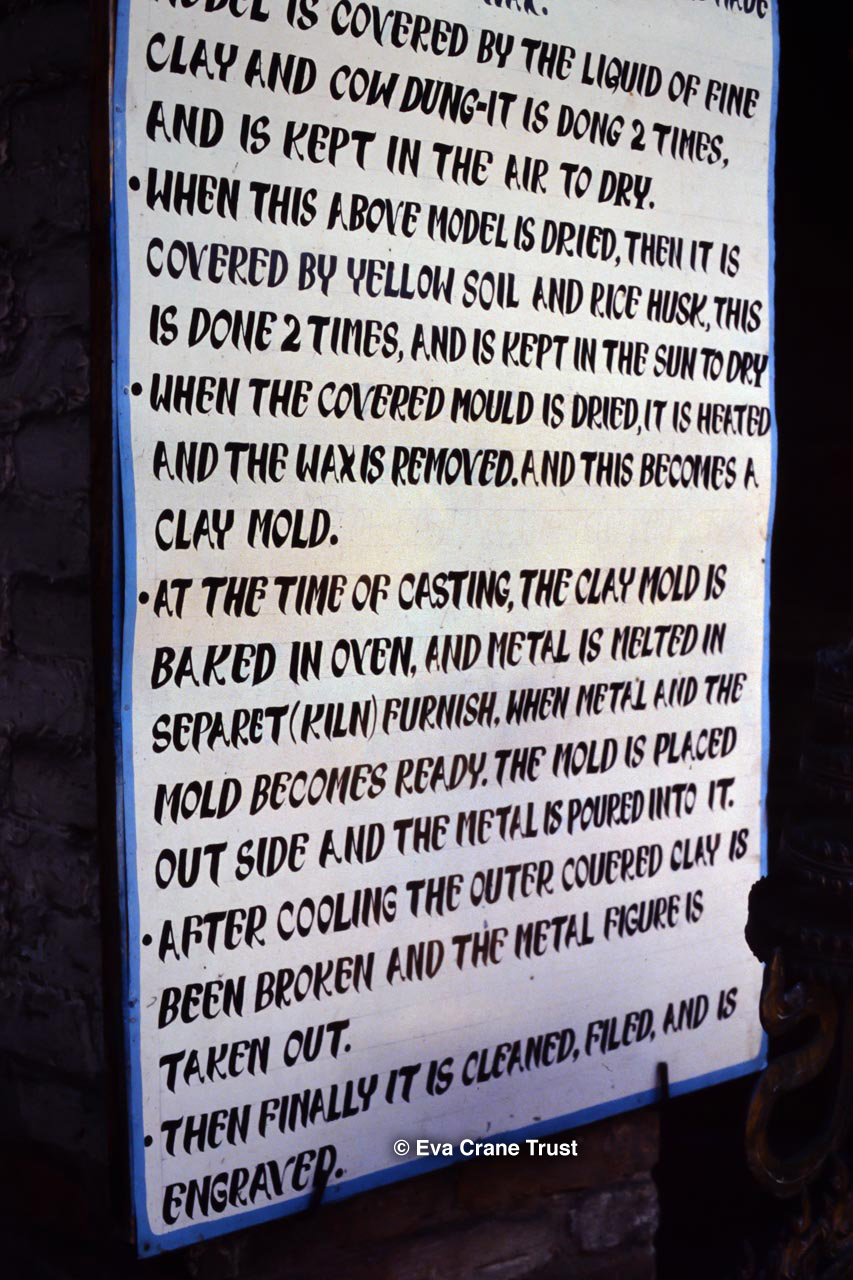 MODEL IS COVERED BY THE LIQUID OF FINE
CLAY AND COW DUNG-IT IS DONG 2 TIMES,
AND IS KEPT IN THE AIR TO DRY.
• WHEN THIS ABOVE MODEL IS DRIED, THEN IT IS
COVERED BY YELLOW SOIL AND RICE HUSK, THIS
IS DONE 2 TIMES, AND IS KEPT IN THE SUN TO DRY
• WHEN THE COVERED MOULD IS DRIED, IT IS HEATED
AND THE WAX IS REMOVED. AND THIS BECOMES A
CLAY MOLD.
• AT THE TIME OF CASTING, THE CLAY MOLD IS
BAKED IN OVEN, AND METAL IS MELTED IN
SEPARET (KILN) FURNISH. WHEN METAL AND THE
MOLD BECOMES READY. THE MOLD IS PLACED
OUT SIDE AND THE METAL IS POURED INTO IT.
• AFTER COOLING THE OUTER COUERED CLAY IS
BEEN BROKEN AND THE METAL FIGURE IS
TAKEN OUT.
• THEN FINALLY IT IS CLEANED, FILED, AND IS
ENGRAVED.
© Eva Crane Trust